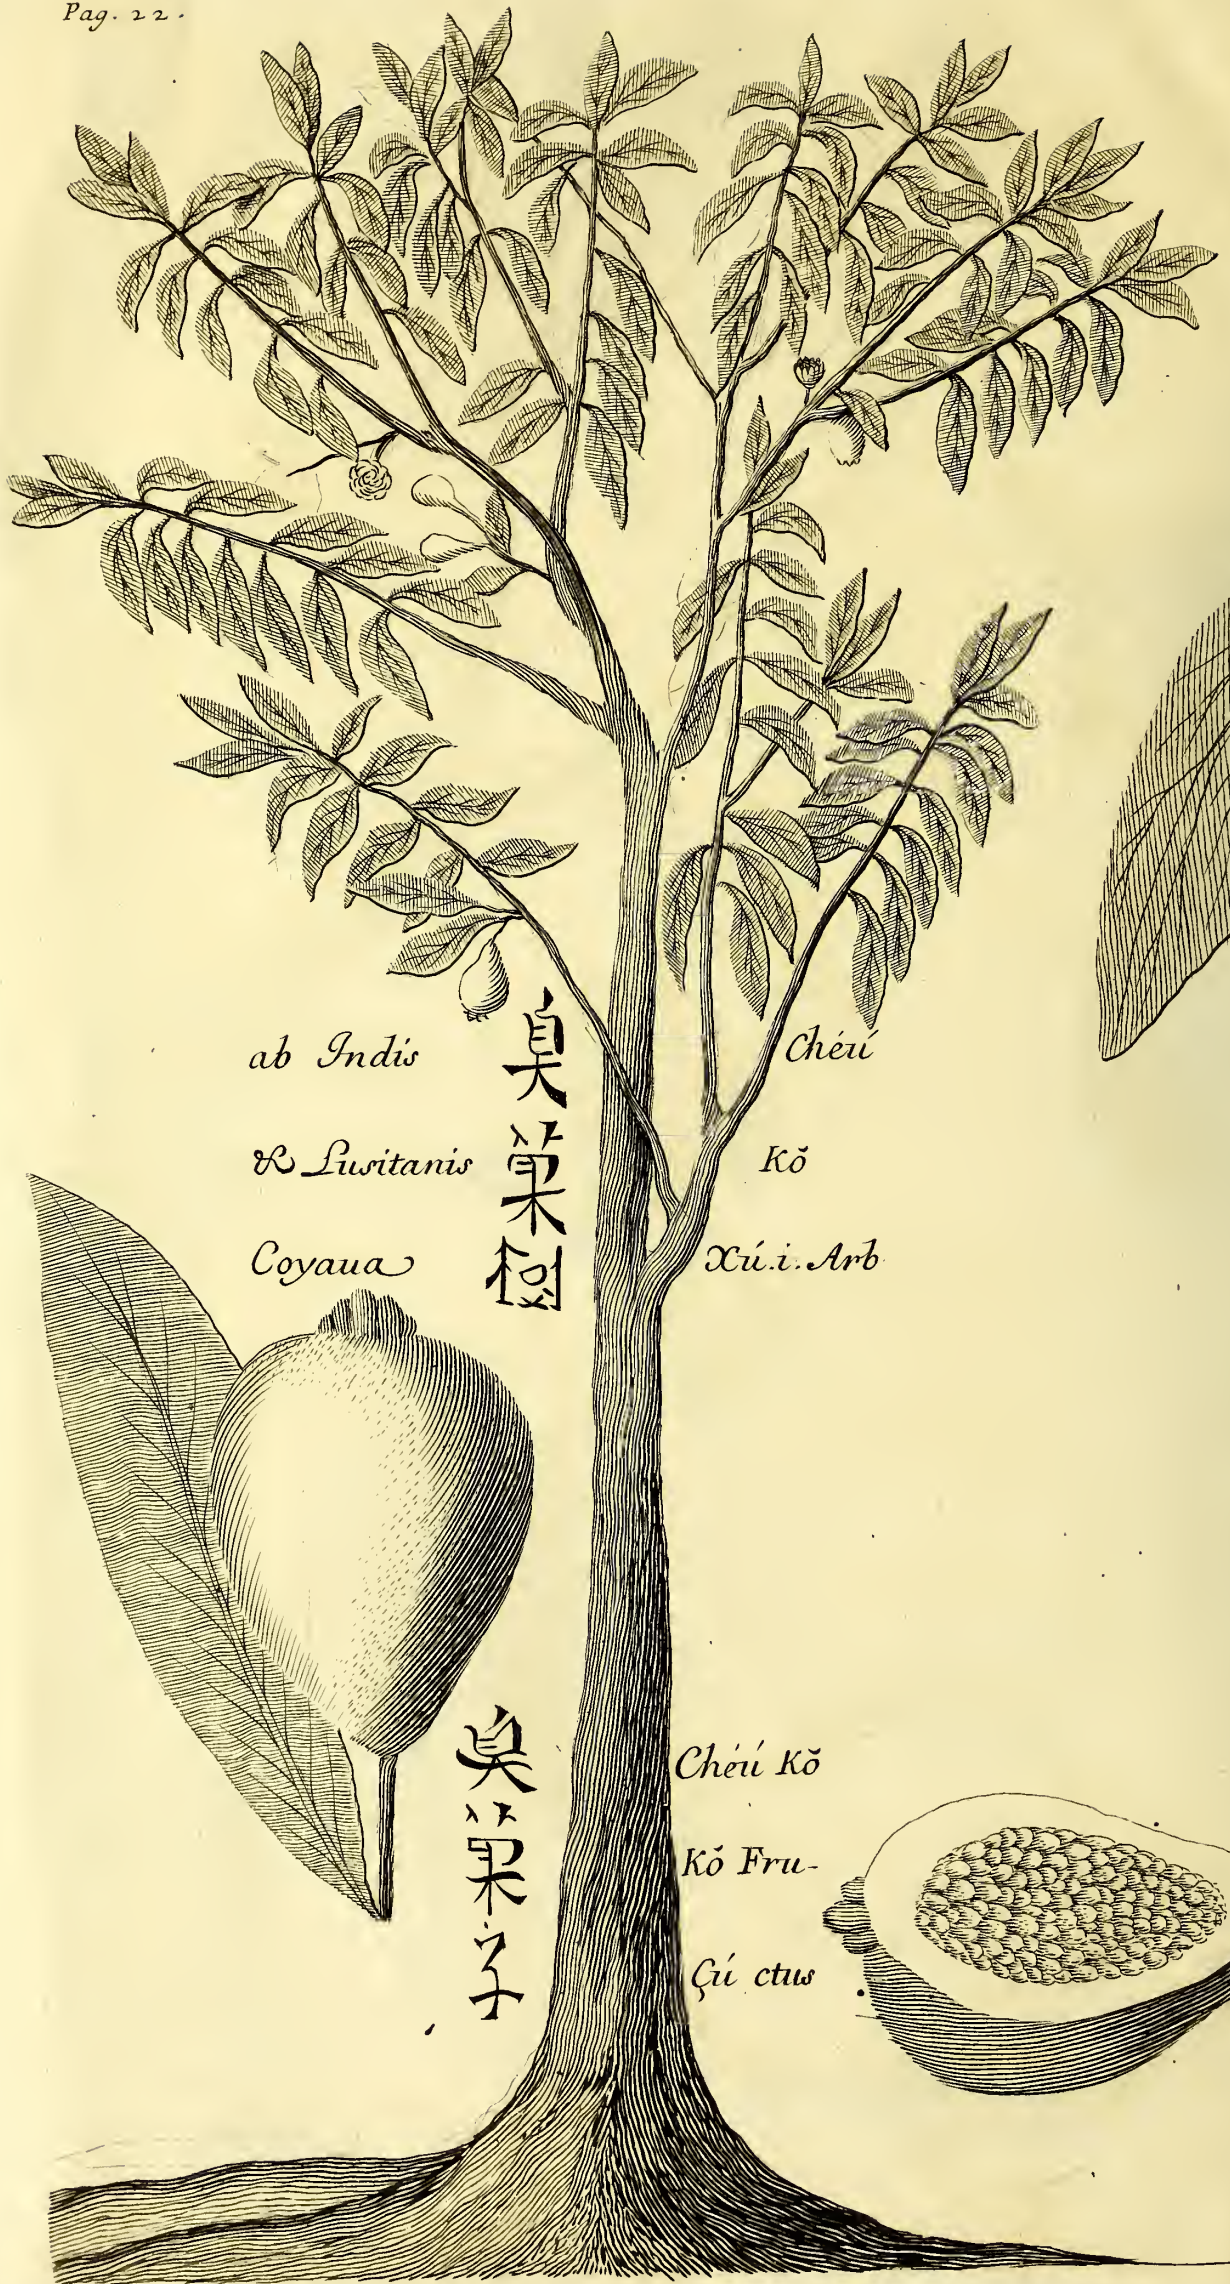 Pag. 22.
ab Indis
& Lusitanis
Coyaua
臭菓樹
Chéú
Kŏ
Xú.i. Arb
臭菓子
Chéú Kŏ
Kŏ Fru-
Çú ctus